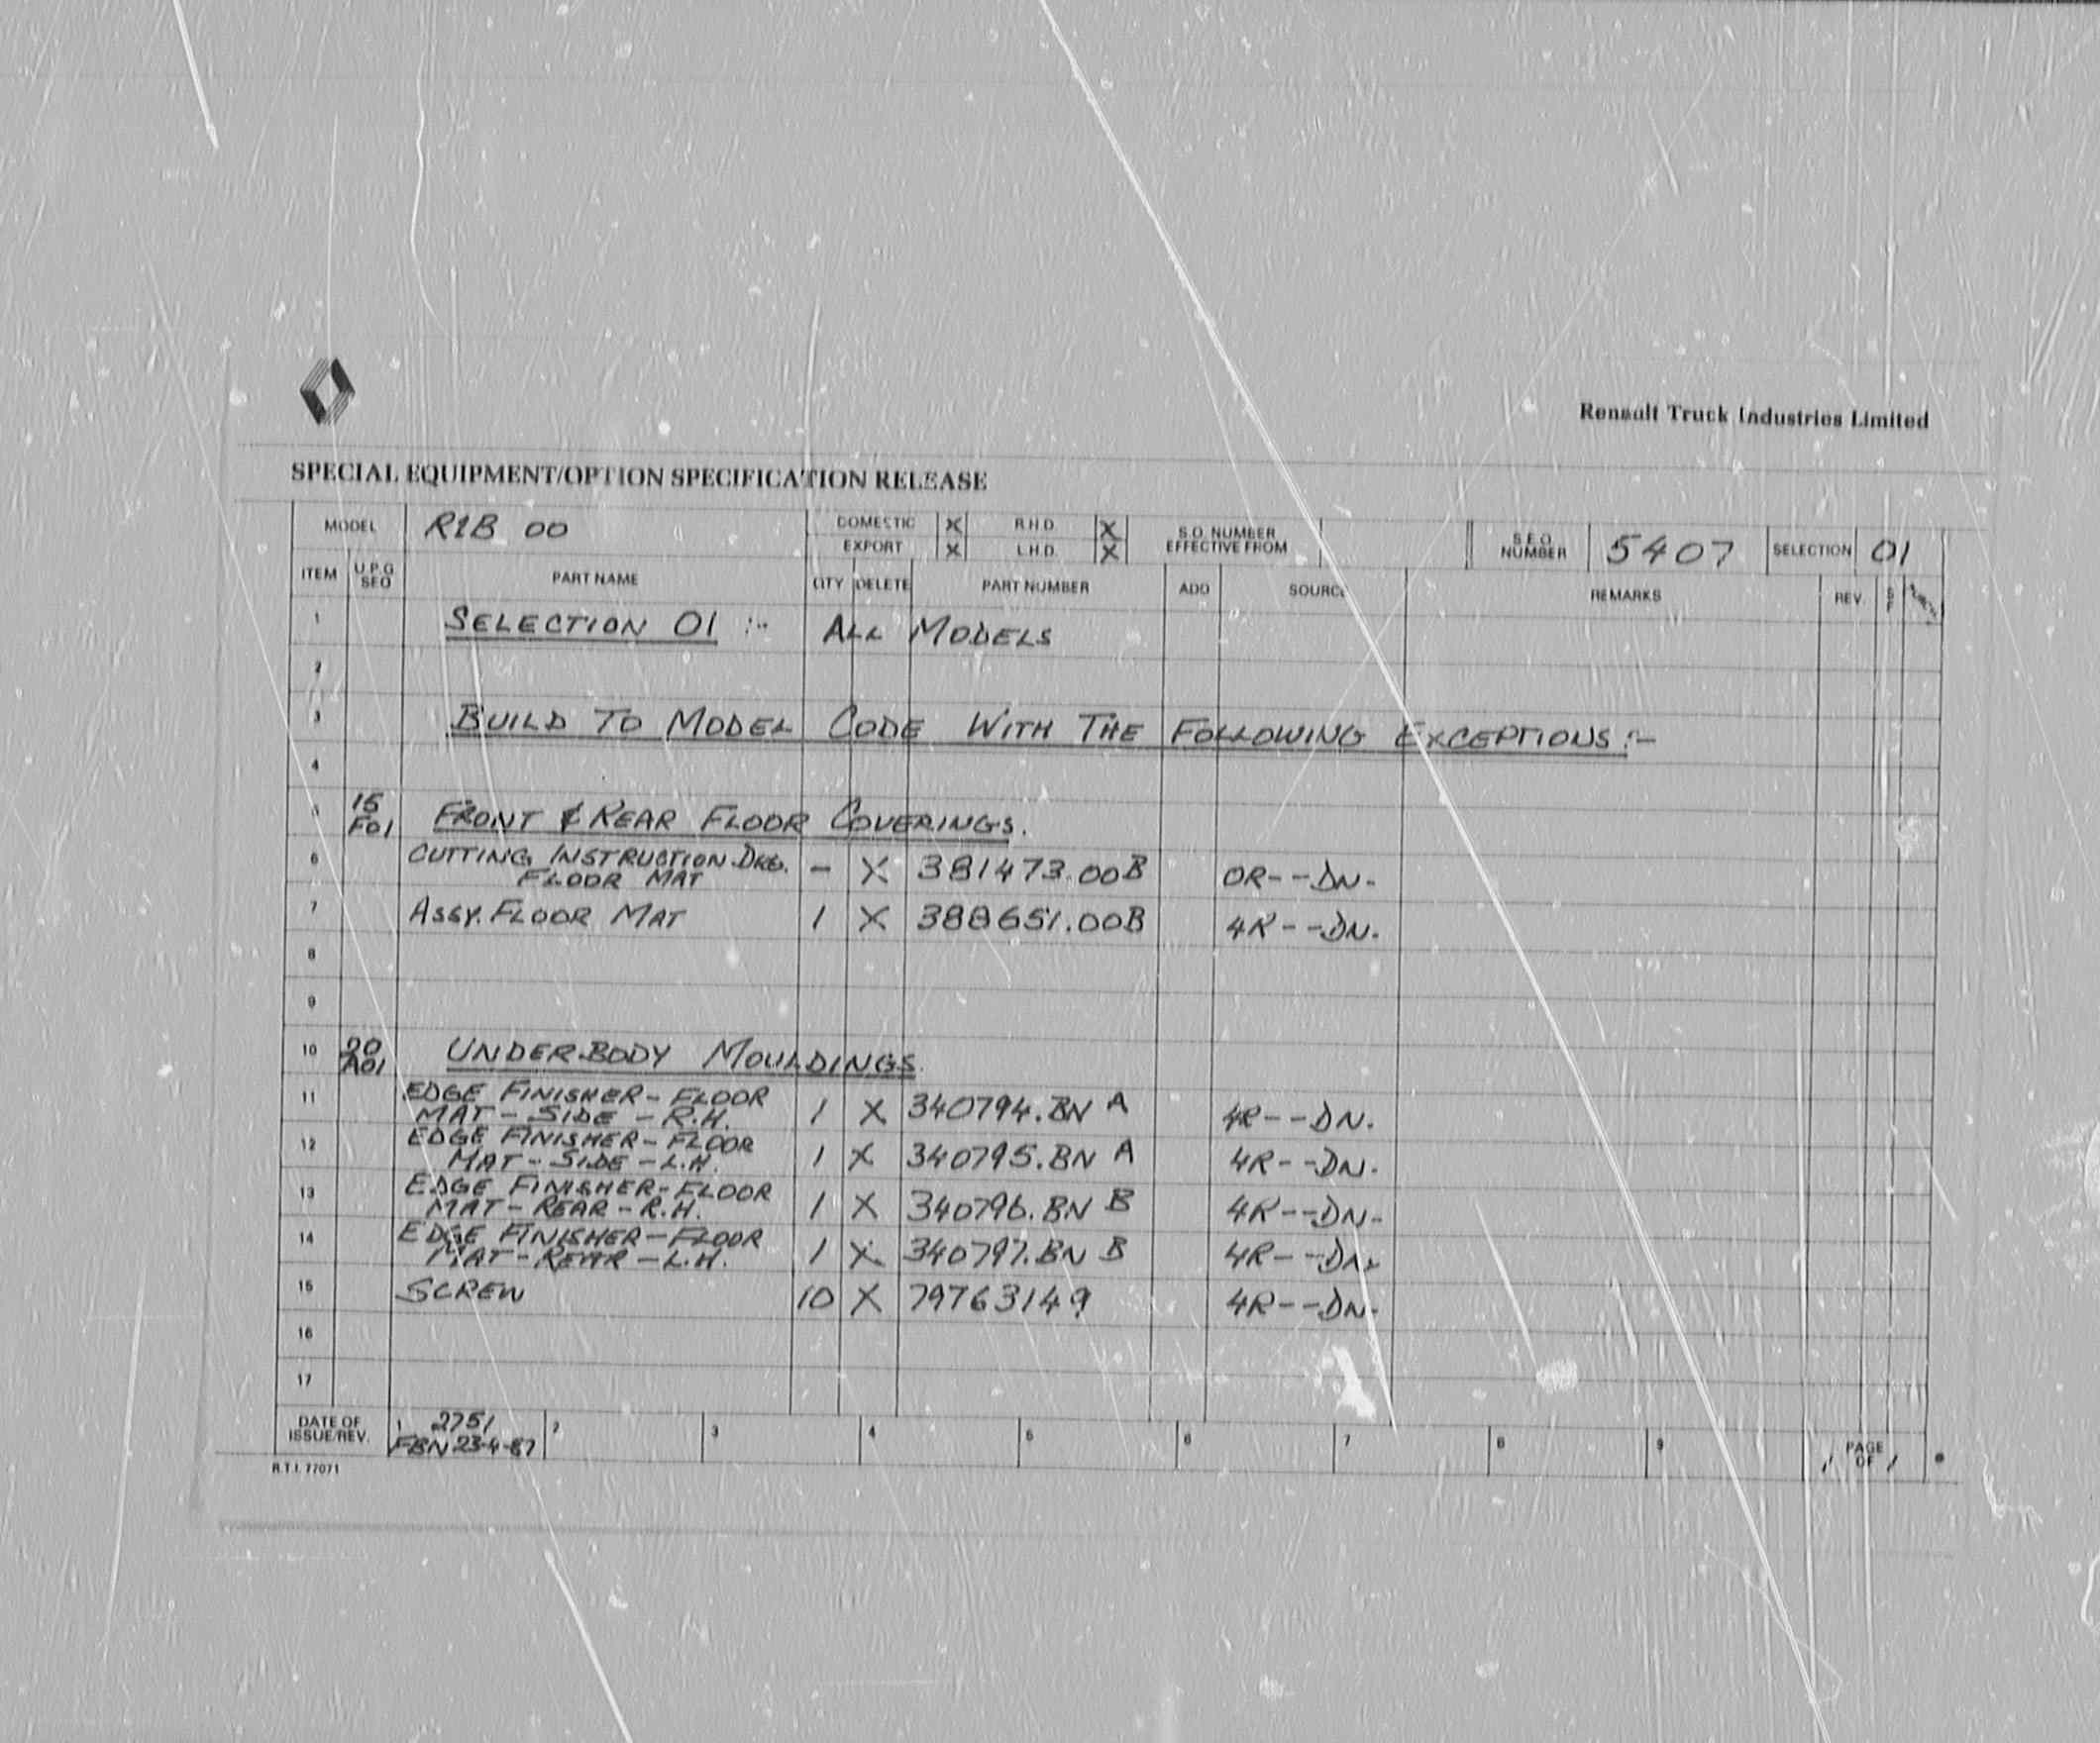 Renault Truck Industries Limited
SPECIAL EQUIPMENT/OPTION SPECIFICATION RELEASE
MODEL R1B 00 DOMESTIC X R.H.D. X S.O. NUMBER EFFECTIVE FROM S.E.O. NUMBER 5407 SELECTION 01
EXPORT X L.H.D. X
ITEM U.P.G SEQ PART NAME QTY DELETE PART NUMBER ADD SOURCE REMARKS REV.
1 SELECTION 01 :- ALL MODELS
2
3 BUILD TO MODEL CODE WITH THE FOLLOWING EXCEPTIONS :-
4
5 15 F01 FRONT & REAR FLOOR COVERINGS.
6 CUTTING INSTRUCTION DRG. FLOOR MAT - X 381473.00B 0R--DN-
7 ASSY. FLOOR MAT 1 X 388651.00B 4R--DN-
8
9
10 20 A01 UNDERBODY MOULDINGS.
11 EDGE FINISHER - FLOOR MAT - SIDE - R.H. 1 X 340794.BN A 4R--DN-
12 EDGE FINISHER - FLOOR MAT - SIDE - L.H. 1 X 340795.BN A 4R--DN-
13 EDGE FINISHER - FLOOR MAT - REAR - R.H. 1 X 340796.BN B 4R--DN-
14 EDGE FINISHER - FLOOR MAT - REAR - L.H. 1 X 340797.BN B 4R--DN-
15 SCREW 10 X 79763149 4R--DN-
16
17
DATE OF ISSUE/REV. 1 2751 FBN 23-4-87 2 3 4 5 6 7 8 9 1 PAGE OF 1
R.T.I. 77071